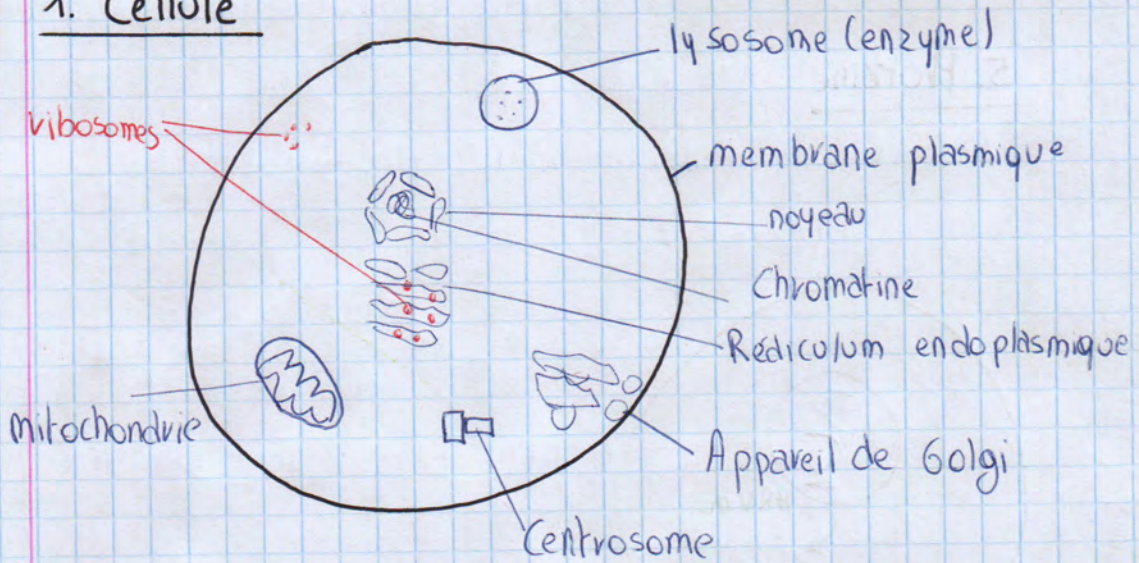 1. Cellule
lysosome (enzyme)
ribosomes
membrane plasmique
noyeau
Chromatine
Rediculum endoplasmique
mitochondrie
Appareil de Golgi
Centrosome